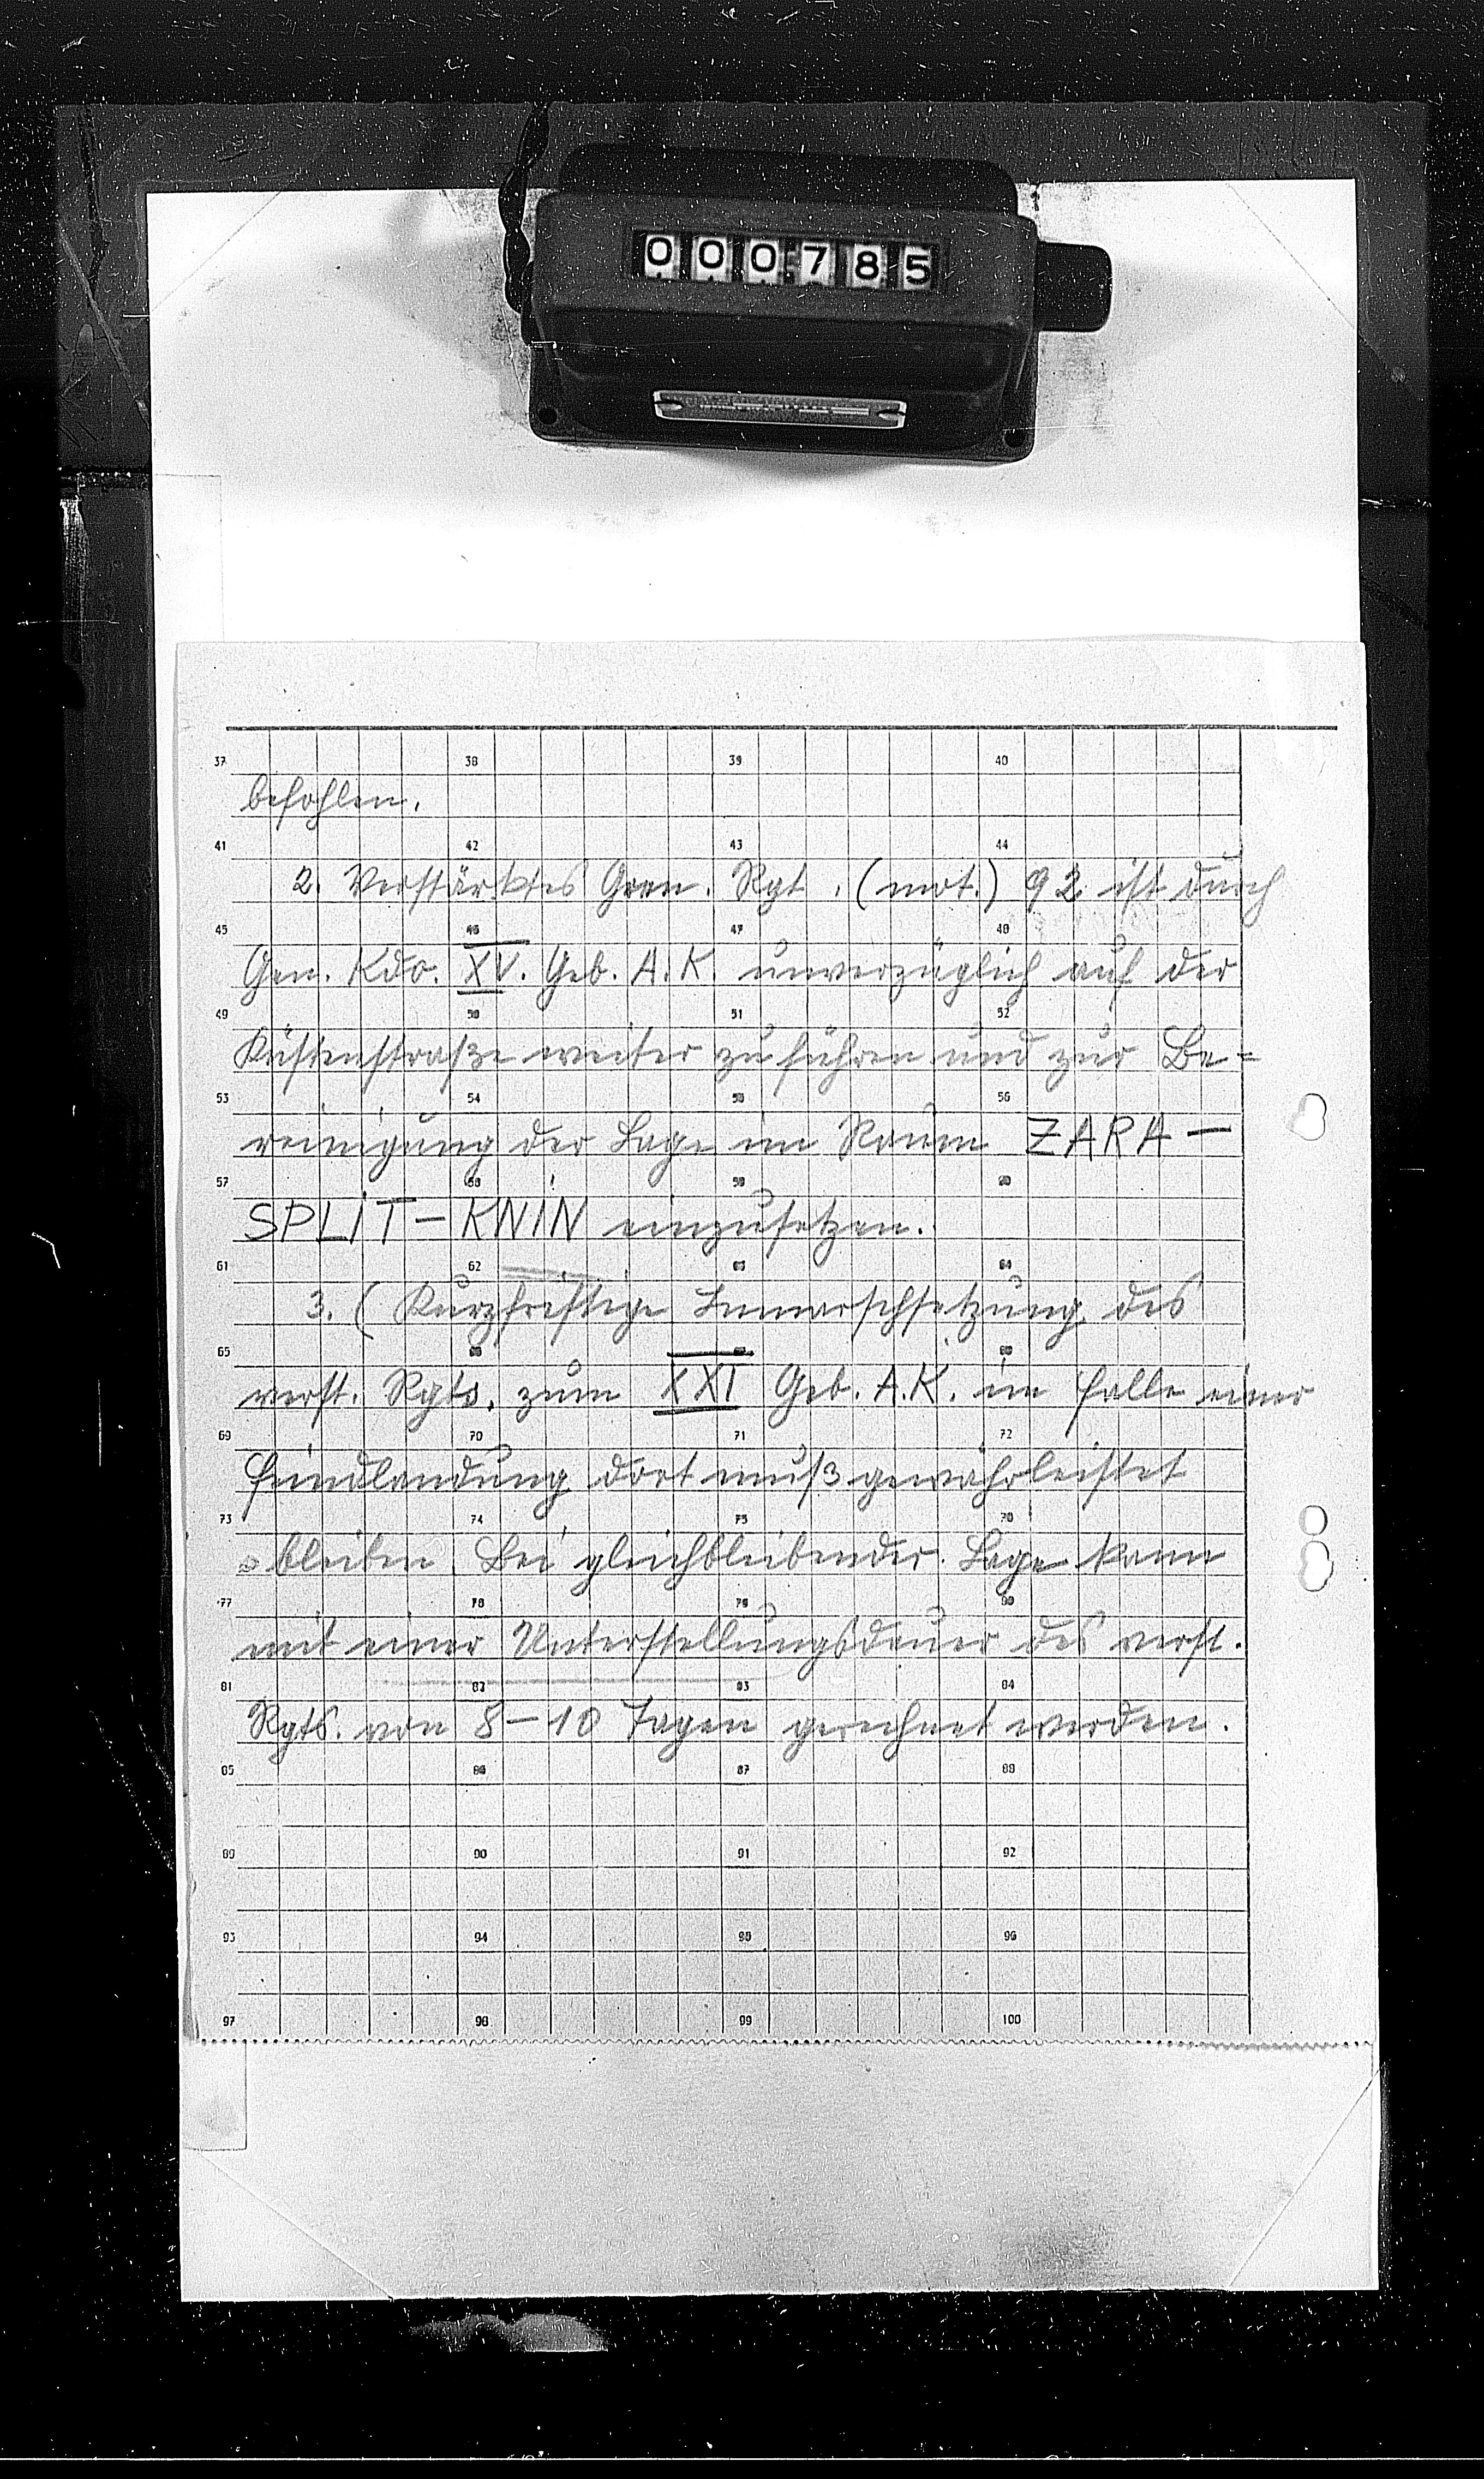 000785
37 38 39 40
befohlen.
41 42 43 44
2. Verstärktes Gren. Rgt. (mot.) 92 ist durch
45 46 47 48
Gen. Kdo. XV. Geb. A. K. unverzüglich auf der
49 50 51 52
Küstenstraße weiter zu führen und zur Be=
53 54 55 56
reinigung der Lage im Raum ZARA –
57 58 59 60
SPLIT – KNIN einzusetzen.
61 62 63 64
3. ( Kurzfristige Inmarschsetzung des
65 66 67 68
verst. Rgts. zum XXI Geb. A.K. im Falle einer
69 70 71 72
Feindlandung dort muß gewährleistet
73 74 75 76
bleiben. Bei gleichbleibender Lage kann
77 78 79 80
mit einer Unterstellungsdauer des verst.
81 82 83 84
Rgts. von 8 – 10 Tagen gerechnet werden.
85 86 87 88
89 90 91 92
93 94 95 96
97 98 99 100